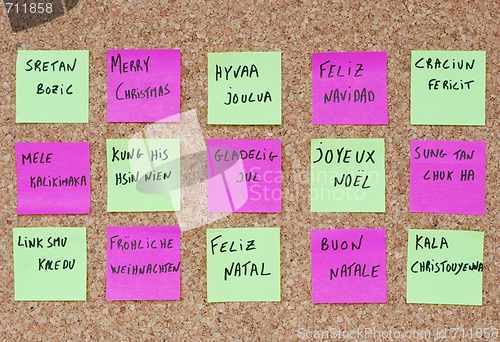 711858
SRETAN
BOZIC
MERRY
CHRISTMAS
HYVAA
JOULUA
FELIZ
NAVIDAD
CRACIUN
FERICIT
MELE
KALIKIMAKA
KUNG HIS
HSIN NIEN
GLADELIG
JUL
JOYEUX
NOËL
SUNG TAN
CHUK HA
LINKSMU
KALEDU
FRÖHLICHE
WEIHNACHTEN
FELIZ
NATAL
BUON
NATALE
KALA
CHRISTOUYENNA
© Crestock / PHOTOCREO